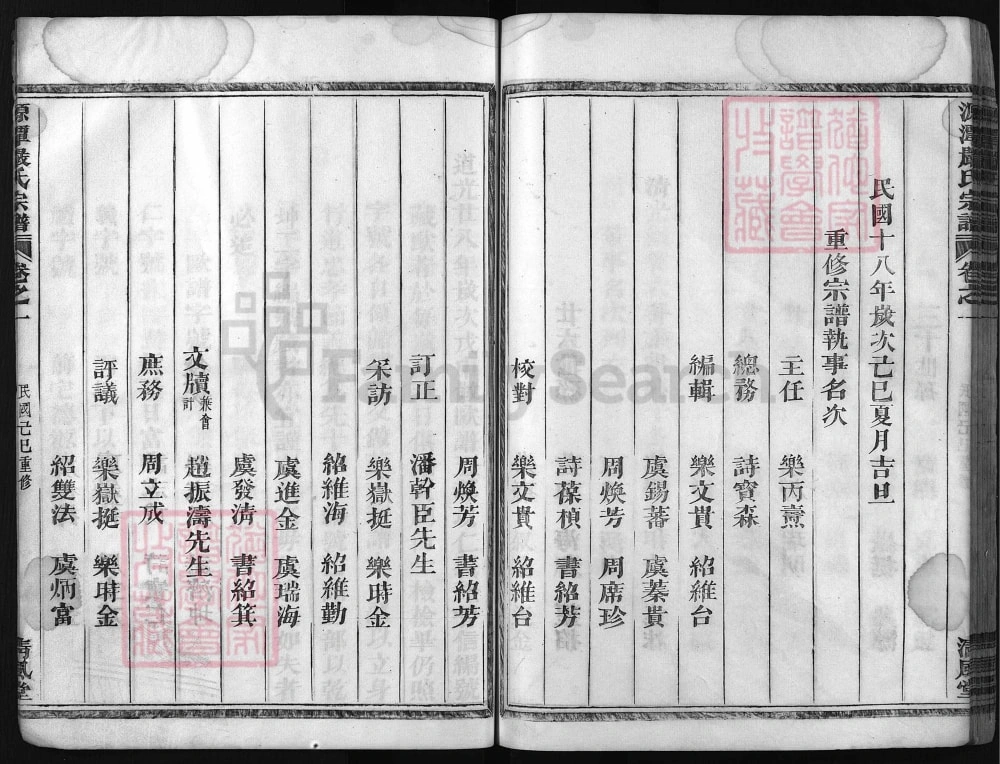 源潭嚴氏宗譜 卷之一 清風堂
民國十八年歲次己巳夏月吉旦
重修宗譜執事名次
主任 樂丙燾
總務 詩寶森
編輯 樂文貴 紹維台
虞錫蕃 虞蓁貴
周煥芳 周席珍
詩葆楨 書紹芳
校對 樂文貴 紹維台
周煥芳 書紹芳
訂正 潘幹臣先生
采訪 樂嶽挺 樂時金
紹維海 紹維勤
虞進金 虞瑞海
虞發清 書紹箕
文牘兼會計 趙振濤先生
庶務 周立戒
評議 樂嶽挺 樂時金
紹雙法 虞炳富
源潭嚴氏宗譜 卷之一 民國己巳重修 清風堂
FamilySearch